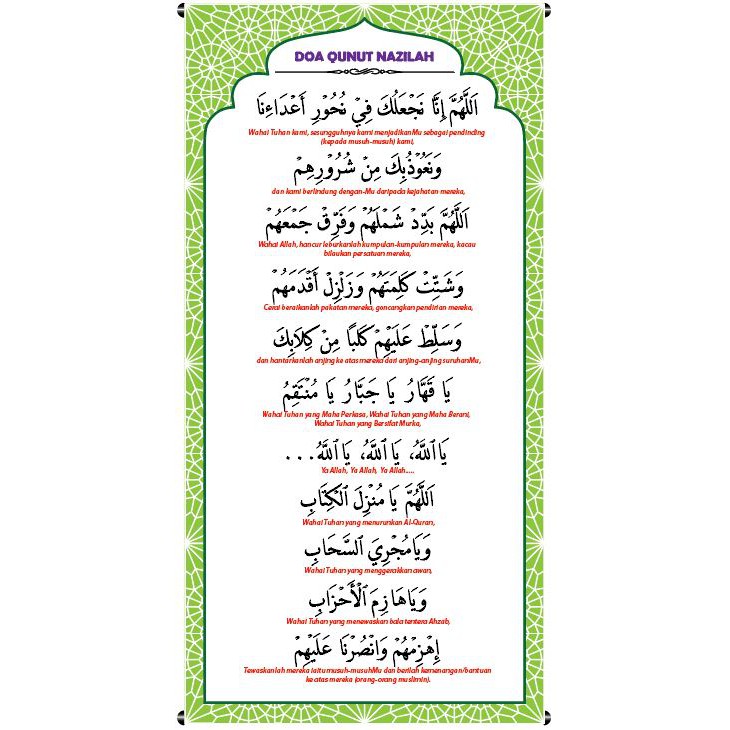 DOA QUNUT NAZILAH
اَللَّهُمَّ إِنَّا نَجْعَلُكَ فِيْ نُحُوْرِ أَعْدَاءِنَا
Wahai Tuhan kami, sesungguhnya kami menjadikanMu sebagai pendinding
(kepada musuh-musuh) kami,
وَنَعُوْذُبِكَ مِنْ شُرُوْرِهِمْ
dan kami berlindung dengan-Mu daripada kejahatan mereka,
اَللَّهُمَّ بَدِّدْ شَمْلَهُمْ وَفَرِّقْ جَمْعَهُمْ
Wahai Allah, hancur leburkanlah kumpulan-kumpulan mereka, kacau
bilaukan persatuan mereka,
وَشَتِّتْ كَلِمَتَهُمْ وَزَلْزِلْ أَقْدَمَهُمْ
Cerai beraikanlah pakatan mereka, goncangkan pendirian mereka,
وَسَلِّطْ عَلَيْهِمْ كَلْبًا مِنْ كِلَابِكَ
dan hantarkanlah anjing ke atas mereka dari anjing-anjing suruhanMu,
يَا قَهَّارُ يَا جَبَّارُ يَا مُنْتَقِمُ
Wahai Tuhan yang Maha Perkasa, Wahai Tuhan yang Maha Berani,
Wahai Tuhan yang Bersifat Murka,
يَا اَللَّهُ، يَا اَللَّهُ، يَا اَللَّهُ...
Ya Allah, Ya Allah, Ya Allah....
اَللَّهُمَّ يَا مُنْزِلَ الْكِتَابِ
Wahai Tuhan yang menurunkan Al-Quran,
وَيَامُجْرِيَ السَّحَابِ
Wahai Tuhan yang menggerakkan awan,
وَيَاهَازِمَ الْأَحْزَابِ
Wahai Tuhan yang menewaskan bala tentera Ahzab,
إِهْزِمْهُمْ وَانْصُرْنَا عَلَيْهِمْ
Tewaskanlah mereka iaitu musuh-musuhMu dan berilah kemenangan/bantuan
ke atas mereka (orang-orang muslimin).